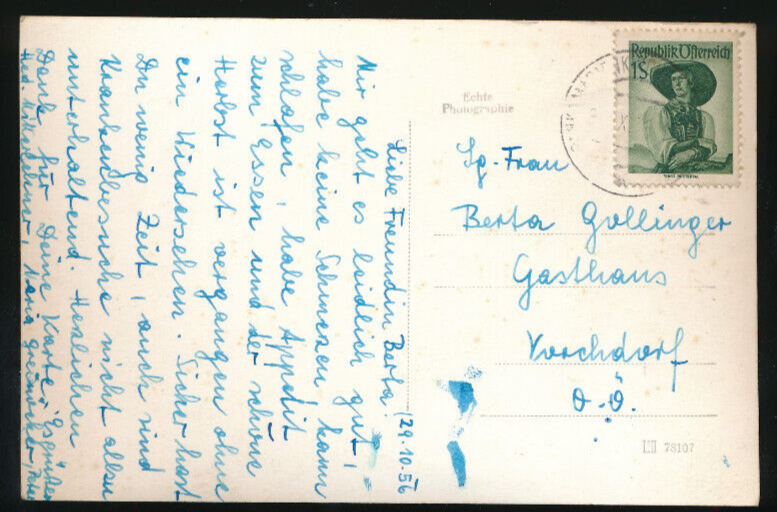 Liebe Freundin Berta! 29.10.56
Mir geht es leidlich gut,
habe keine Schmerzen kann
schlafen, habe Appetit
zum Essen und der schöne
Herbst ist vergangen ohne
ein Wiedersehen. Sicher hast
Du wenig Zeit, auch sind
Krankenbesuche nicht allzu
unterhaltend. Herzlichen
Dank für Deine Karte. Es grüßen
Maria
Echte
Photographie
Republik Österreich
1S
Sg. Frau
Berta Gollinger
Gasthaus
Vorchdorf
O.Ö.
78107